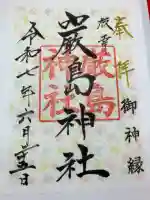 奉拝
御神縁
嚴島神社
嚴島
神社
令和七年六月
日